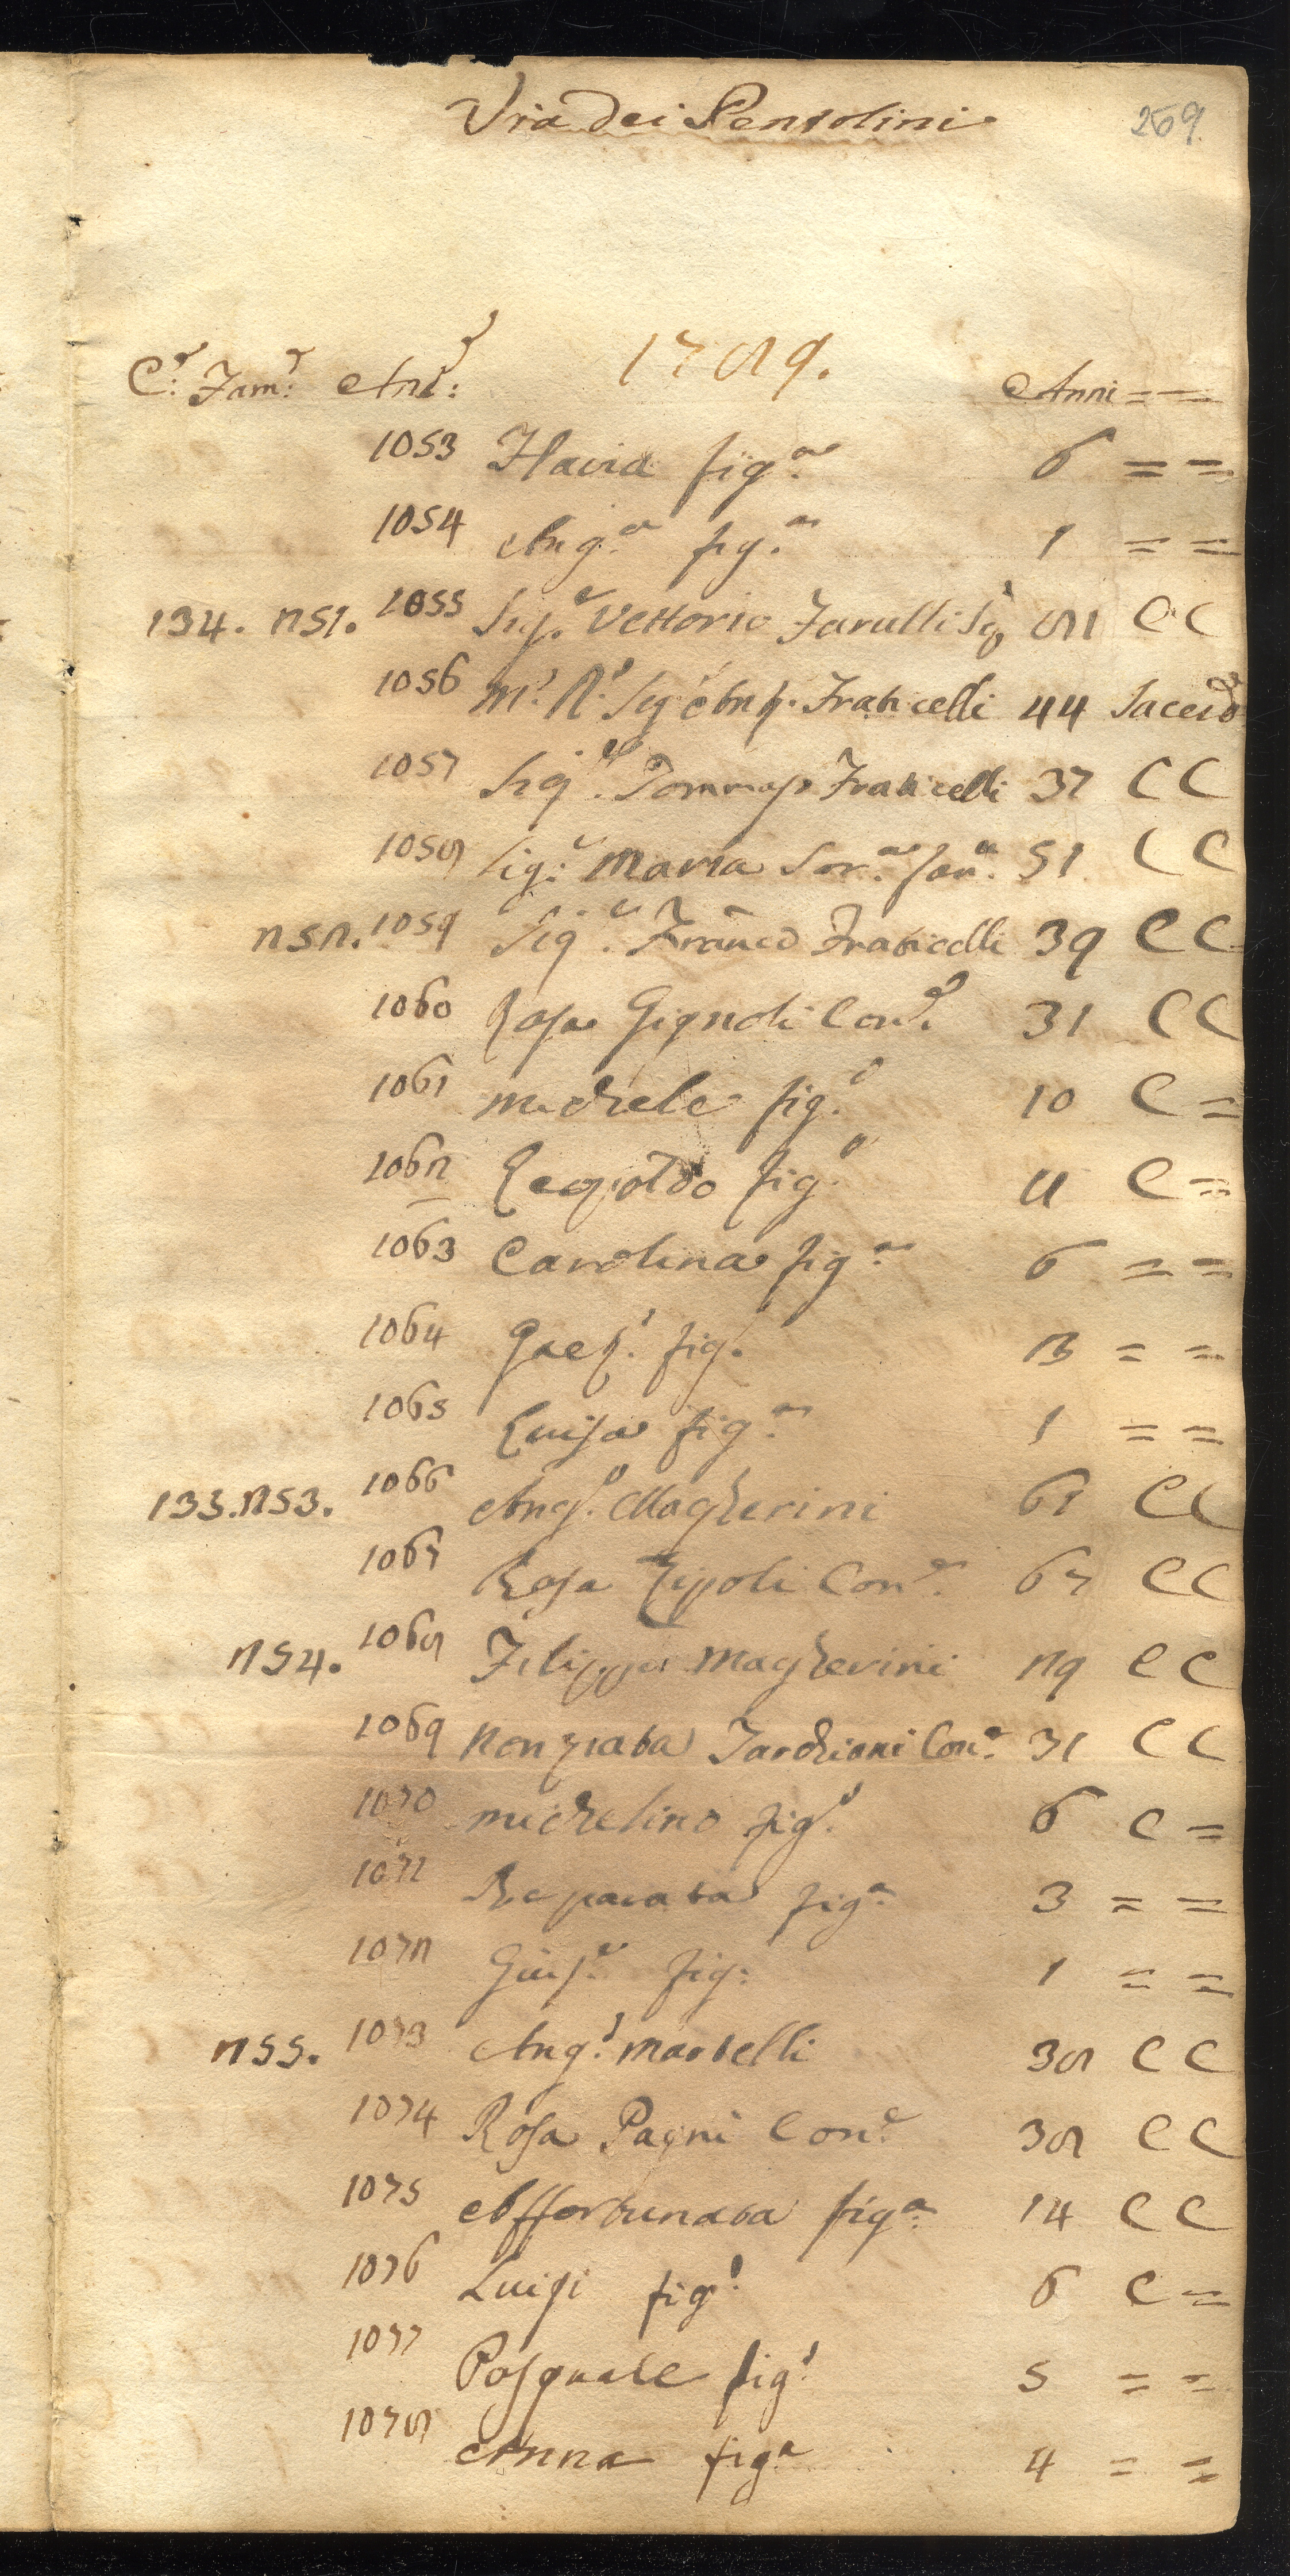 Via dei Pentolini 269.
1789.
C.e Fam.e Ani.e Anni = =
1053 Flavia fig.a 6 = =
1054 Ang.a fig.a 1 = =
134. 251. 1055 Sig.e Vettorio Farulli 81 C C
1056 M.o R.o Sig.e Fraticelli 44 Sacerd.
1057 Sig.e Tommaso Fraticelli 37 C C
1058 Sig.a Maria Sor.a 51 C C
252. 1059 Sig.e Franco Fraticelli 39 C C
1060 Rosa Gignoli Con.e 31 C C
1061 Michele fig.o 10 C =
1062 Leopoldo fig.o 11 C =
1063 Carolina fig.a 6 = =
1064 Gaet.o fig.o = =
1065 Luisa fig.a 1 = =
135. 253. 1066 Ang.o Magherini 61 C C
1067 Rosa Zipoli Con.e 67 C C
254. 1068 Filippo Magherini 29 C C
1069 Nonziata Tarchiani Con.e 31 C C
1070 Michelino fig.o 6 C =
1071 Reparata fig.a 3 = =
1072 Gius.e fig: 1 = =
255. 1073 Ang.o Martelli 38 C C
1074 Rosa Pagni Con.e 38 C C
1075 Affortunata fig.a 14 C C
1076 Luigi fig.o 6 C =
1077 Pasquale fig.o 5 = =
1078 Anna fig.a 4 = =